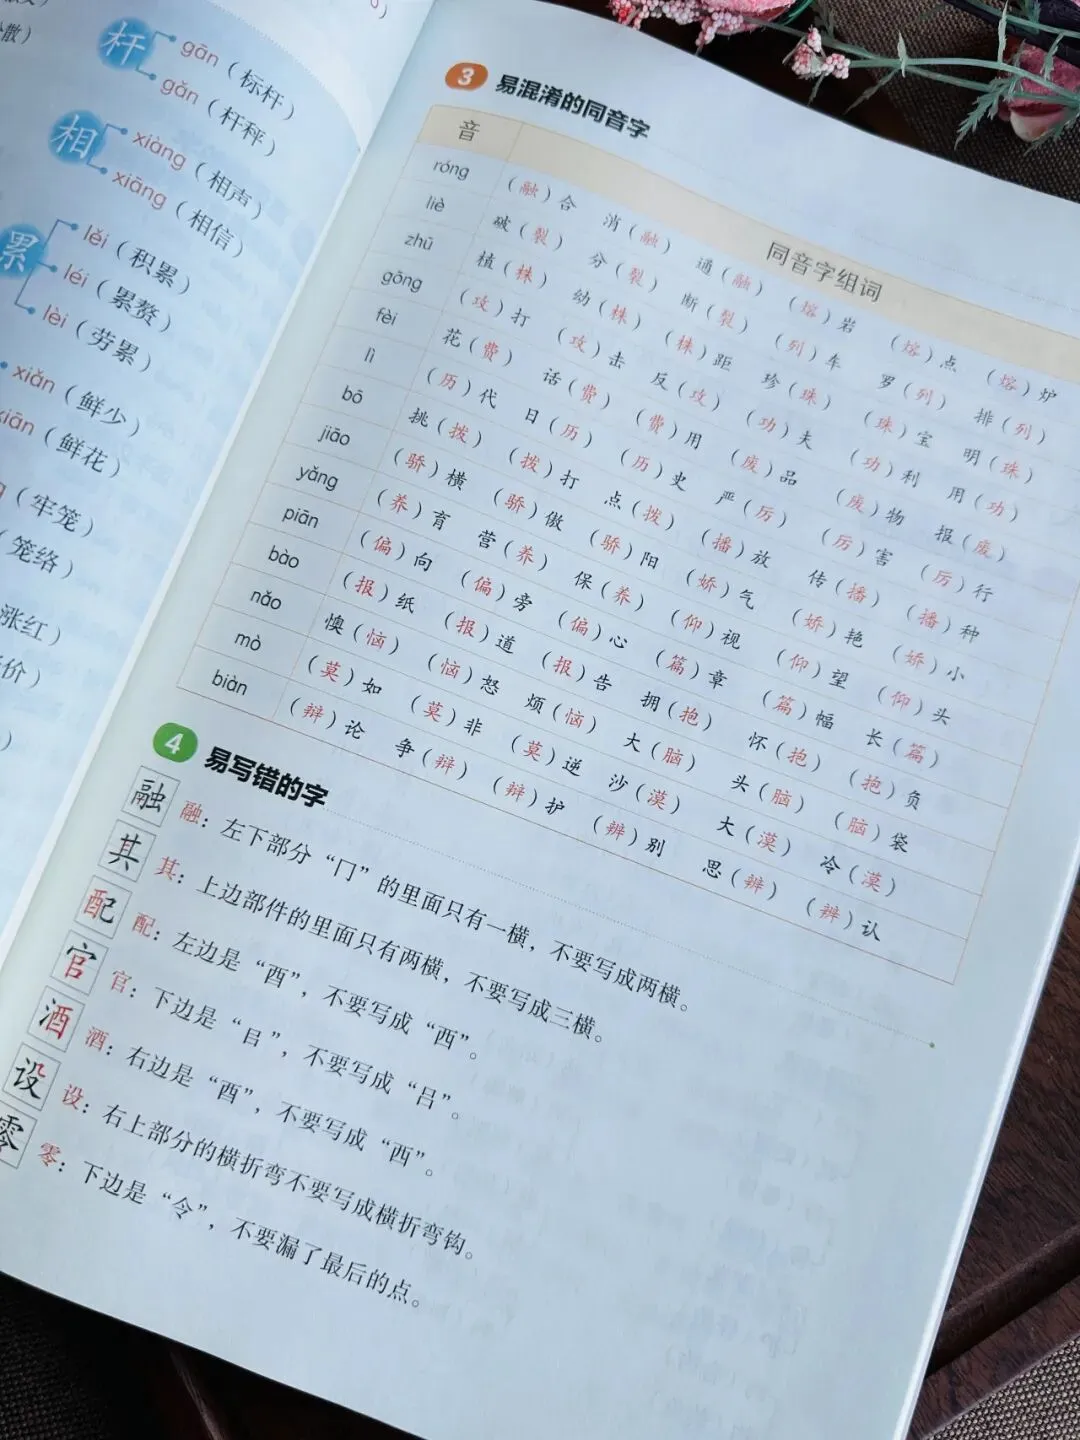 散）
杆
gān（标杆）
gǎn（杆秤）
相
xiàng（相声）
xiāng（相信）
累
lěi（积累）
léi（累赘）
lèi（劳累）
xiǎn（鲜少）
xiān（鲜花）
（牢笼）
笼络）
涨红）
价）
3 易混淆的同音字
音 同音字组词
róng （融）合 消（融） 通（融） （熔）岩 （熔）点 （熔）炉
liè 破（裂） 分（裂） 断（裂） （列）车 罗（列） 排（列）
zhū 植（株） 幼（株） （株）距 珍（珠） （珠）宝 明（珠）
gōng （攻）打 （攻）击 反（攻） （功）夫 （功）利 用（功）
fèi 花（费） 话（费） （费）用 （废）品 （废）物 报（废）
lì （历）代 日（历） （历）史 严（厉） （厉）害 （厉）行
bō 挑（拨） （拨）打 点（拨） （播）放 传（播） （播）种
jiāo （骄）横 （骄）傲 （骄）阳 （娇）气 （娇）艳 （娇）小
yǎng （养）育 营（养） 保（养） （仰）视 （仰）望 （仰）头
piān （偏）向 （偏）旁 （偏）心 （篇）章 （篇）幅 长（篇）
bào （报）纸 （报）道 （报）告 拥（抱） 怀（抱） （抱）负
nǎo 懊（恼） （恼）怒 烦（恼） 大（脑） 头（脑） （脑）袋
mò （莫）如 （莫）非 （莫）逆 沙（漠） 大（漠） 冷（漠）
biàn （辩）论 争（辩） （辩）护 （辨）别 思（辨） （辨）认
4 易写错的字
融 融：左下部分“冂”的里面只有一横，不要写成两横。
其 其：上边部件的里面只有两横，不要写成三横。
配 配：左边是“酉”，不要写成“西”。
官 官：下边是“㠯”，不要写成“吕”。
酒 酒：右边是“酉”，不要写成“西”。
设 设：右上部分的横折弯不要写成横折弯钩。
零 零：下边是“令”，不要漏了最后的点。